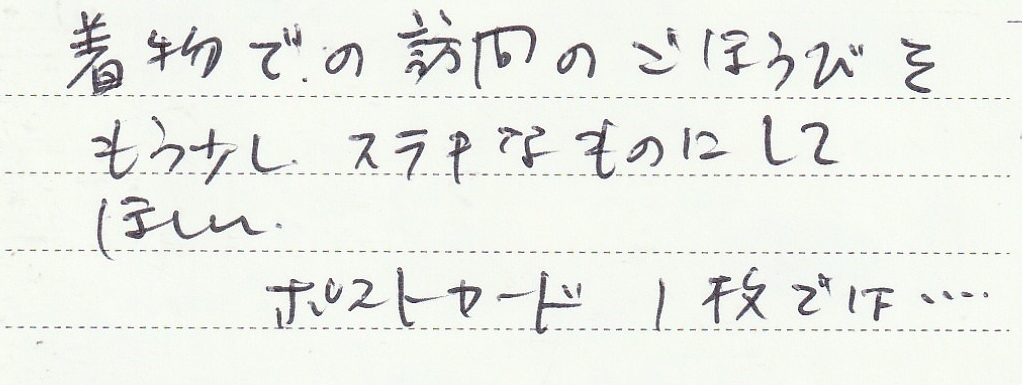 着物での訪問のごほうびを
もう少し ステキなものにして
ほしい.
ポストカード 1枚では····